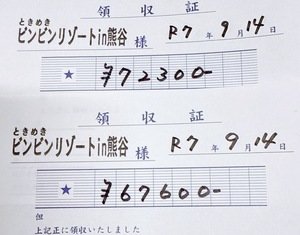 領収証
ときめき
ピンピンリゾートin熊谷 様 R7年9月14日
★ ¥72300-
領収証
ときめき
ピンピンリゾートin熊谷 様 R7年9月14日
★ ¥67600-
但
上記正に領収いたしました